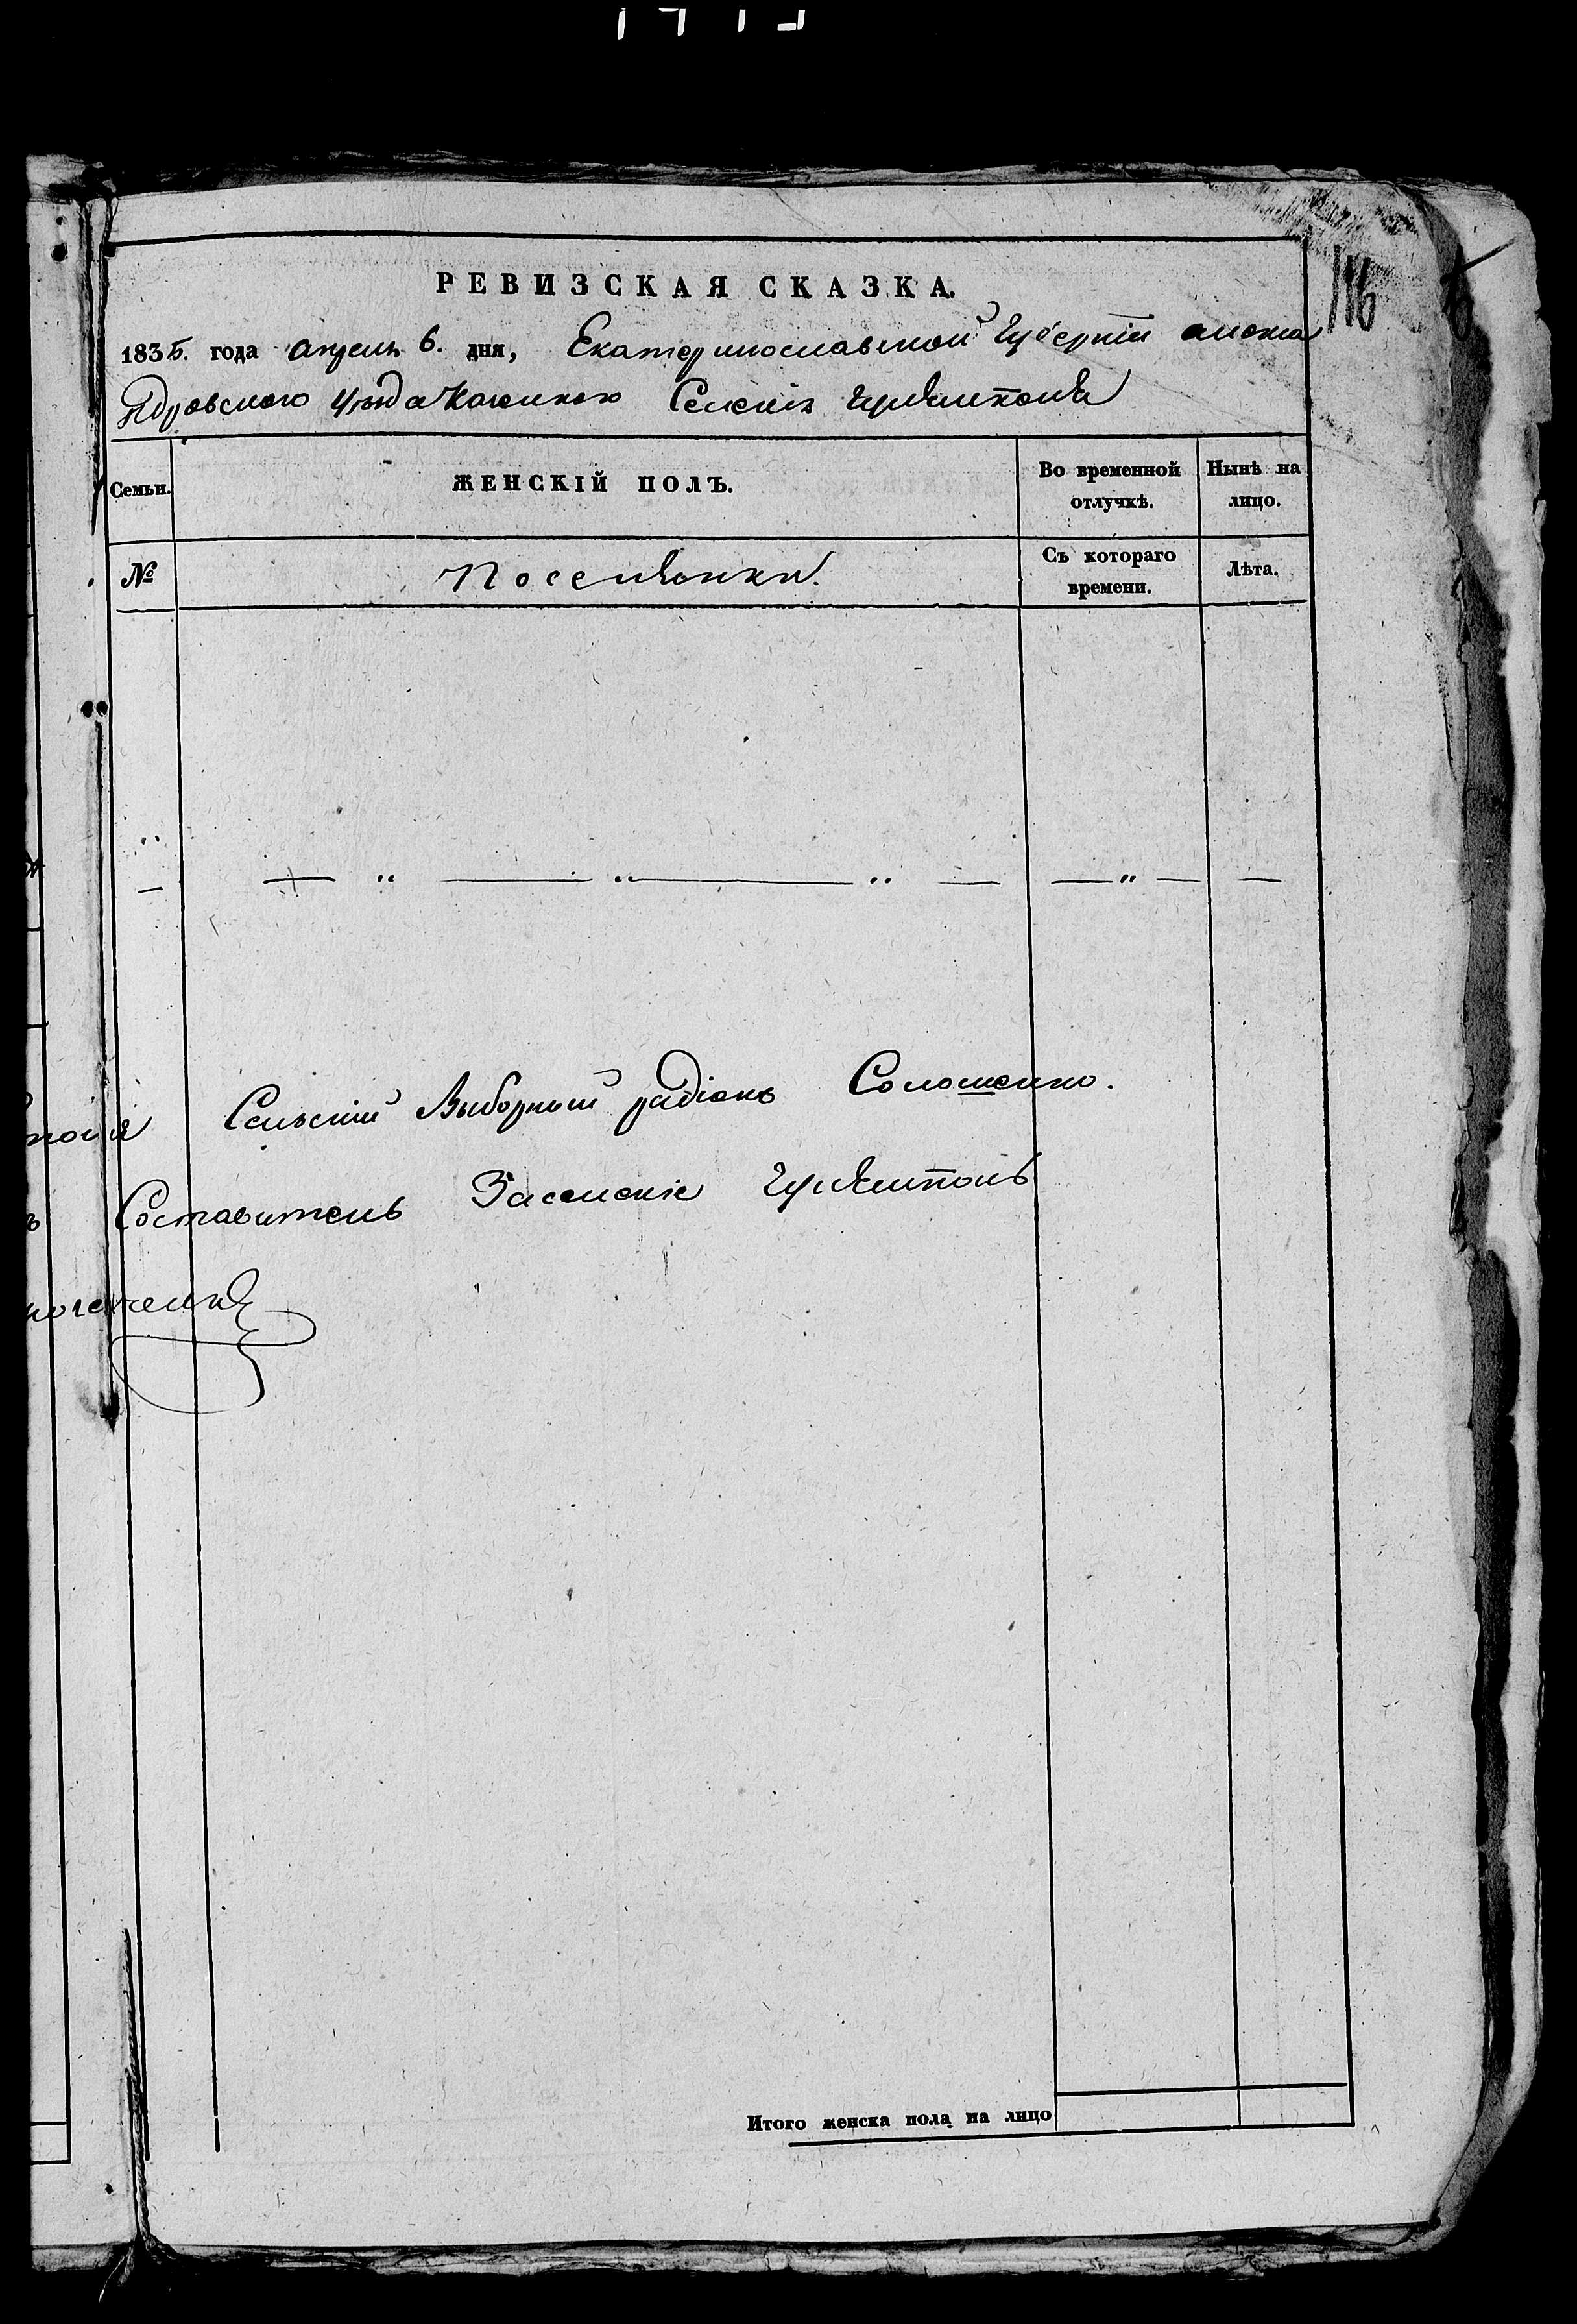 116
РЕВИЗСКАЯ СКАЗКА.
1835. года апреля 6. дня, Екатеринославской Губерніи алекса
ндровского уезда казенного Селенія Гуляйполя
Семьи.
ЖЕНСКІЙ ПОЛЪ.
Во временной отлучкѣ.
Нынѣ на лицо.
№
Поселянки.
Съ котораго времени.
Лѣта.
— " — " — " — — " — —
Сельскій Выборный радіонъ Солошенко.
Составитель Заселеніе Гуляйполь
Итого женска пола на лицо